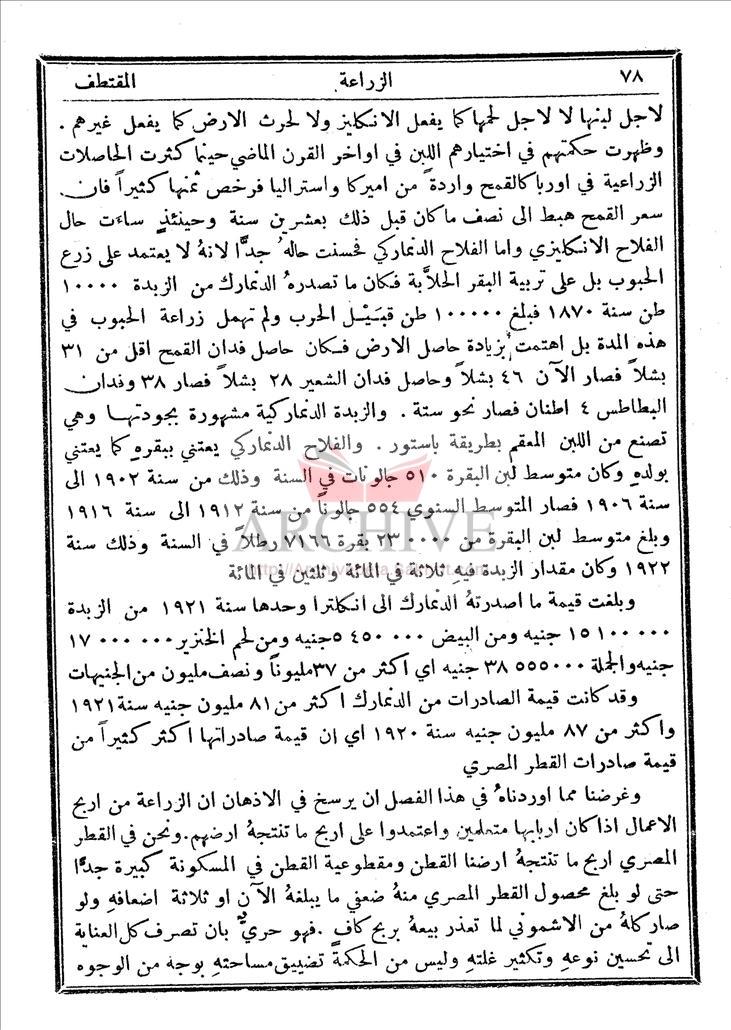 ٧٨ الزراعة المقتطف
لاجل لبنها لا لاجل لحمها كما يفعل الانكليز ولا لحرث الارض كما يفعل غيرهم .
وظهرت حكمتهم في اختيارهم اللبن في اواخر القرن الماضي حينما كثرت الحاصلات
الزراعية في اورباكالقمح واردة من اميركا واستراليا فرخص ثمنها كثيراً فان
سعر القمح هبط الى نصف ماكان قبل ذلك بعشرين سنة وحينئذٍ ساءت حال
الفلاح الانكليزي واما الفلاح الدنماركي فحسنت حاله جدًّا لانهُ لا يعتمد على زرع
الحبوب بل على تربية البقر الحلاَّبة فكان ما تصدرهُ الدنمارك من الزبدة ١٠٠٠٠
طن سنة ١٨٧٠ فبلغ ١٠٠٠٠٠ طن قبَيْل الحرب ولم تهمل زراعة الحبوب في
هذه المدة بل اهتمت بزيادة حاصل الارض فكان حاصل فدان القمح اقل من ٣١
بشلاً فصار الآن ٤٦ بشلاً وحاصل فدان الشعير ٢٨ بشلاً فصار ٣٨ وفدان
البطاطس ٤ اطنان فصار نحو ستة . والزبدة الدنماركية مشهورة بجودتها وهي
تصنع من اللبن المعقم بطريقة باستور . والفلاح الدنماركي يعتني ببقرهِ كما يعتني
بولدهِ وكان متوسط لبن البقرة ٥١٠ جالونات في السنة وذلك من سنة ١٩٠٢ الى
سنة ١٩٠٦ فصار المتوسط السنوي ٥٥٤ جالوناً من سنة ١٩١٢ الى سنة ١٩١٦
وبلغ متوسط لبن البقرة من ٢٣٠٠٠٠ بقرة ٧١٦٦ رطلاً في السنة وذلك سنة
١٩٢٢ وكان مقدار الزبدة فيهِ ثلاثة في المائة وثلثين في المائة
وبلغت قيمة ما اصدرتهُ الدنمارك الى انكلترا وحدها سنة ١٩٢١ من الزبدة
١٥١٠٠٠٠٠ جنيه ومن البيض ٥٤٥٠٠٠٠ جنيه ومن لحم الخنزير ١٧٠٠٠٠٠٠
جنيه والجملة ٣٨٥٥٥٠٠٠ جنيه اي اكثر من ٣٧ مليوناً ونصف مليون من الجنيهات
وقد كانت قيمة الصادرات من الدنمارك اكثر من ٨١ مليون جنيه سنة ١٩٢١
واكثر من ٨٧ مليون جنيه سنة ١٩٢٠ اي ان قيمة صادراتها اكثر كثيراً من
قيمة صادرات القطر المصري
وغرضنا مما اوردناهُ في هذا الفصل ان يرسخ في الاذهان ان الزراعة من اربح
الاعمال اذا كان اربابها متعلمين واعتمدوا على اربح ما تنتجهُ ارضهم.ونحن في القطر
المصري اربح ما تنتجهُ ارضنا القطن ومقطوعية القطن في المسكونة كبيرة جدًّا
حتى لو بلغ محصول القطر المصري منهُ ضعفي ما يبلغهُ الآن او ثلاثة اضعافهِ ولو
صار كلهُ من الاشموني لما تعذر بيعهُ بربح كافٍ .فهو حريٌّ بان تصرف كل العناية
الى تحسين نوعهِ وتكثير غلتهِ وليس من الحكمة تضييق مساحتهِ بوجه من الوجوه
ARCHIVE